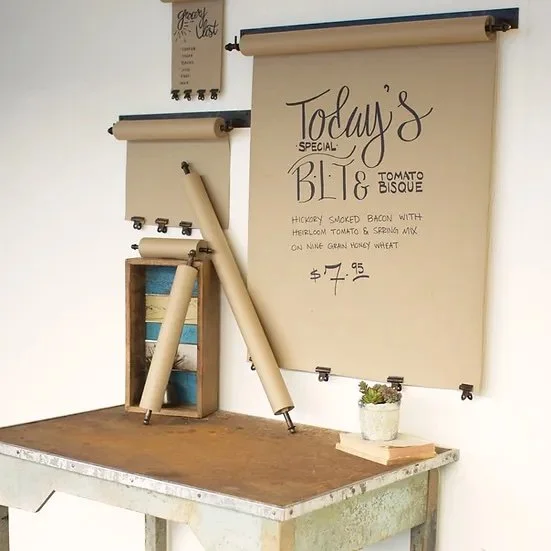 grocery list
Today's
SPECIAL
BLT & TOMATO BISQUE
HICKORY SMOKED BACON WITH
HEIRLOOM TOMATO & SPRING MIX
ON NINE GRAIN HONEY WHEAT
$7.95